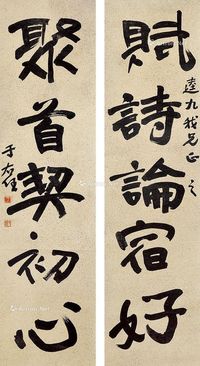 賦詩論宿好
九我兄正之
聚首契初心
于右任